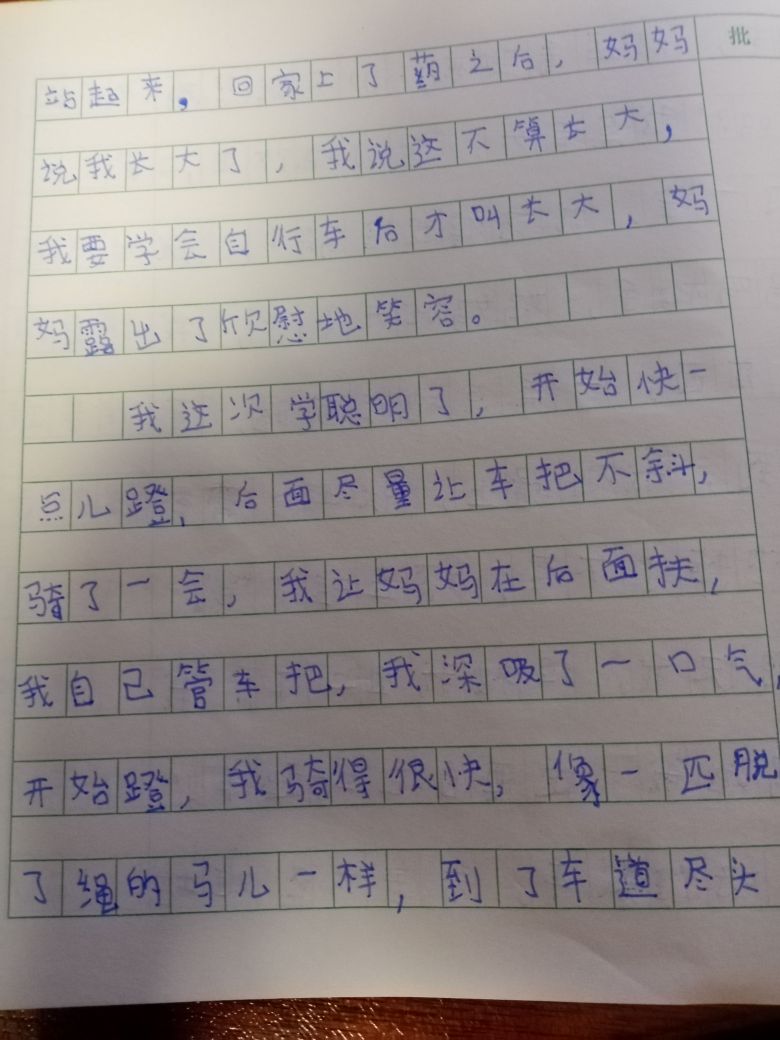 批
站起来。回家上了药之后，妈妈
说我长大了，我说这不算长大，
我要学会自行车后才叫长大，妈
妈露出了欣慰地笑容。
我这次学聪明了，开始快一
点儿蹬，后面尽量让车把不斜，
骑了一会，我让妈妈在后面扶，
我自己管车把，我深吸了一口气，
开始蹬，我骑得很快，像一匹脱
了绳的马儿一样，到了车道尽头